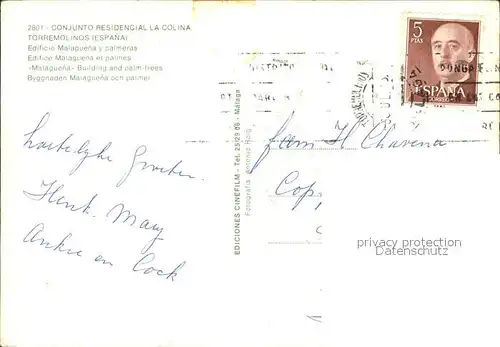 2801 - CONJUNTO RESIDENCIAL LA COLINA
TORREMOLINOS (ESPAÑA)
Edificio Malagueña y palmeras
Edifice Malagueña et palmes
«Malagueña» Building and palm-trees
Byggnaden Malagueña och palmer
5
PTAS
ESPAÑA
CORREOS
EDICIONES CINEFILM - Tel. 23 29 08 - Málaga
Fotografía Antonio Roig
hartelijke Groeten
Henk. Mary
Ankie en Cock
fam H Chavena
Cop
privacy protection
Datenschutz